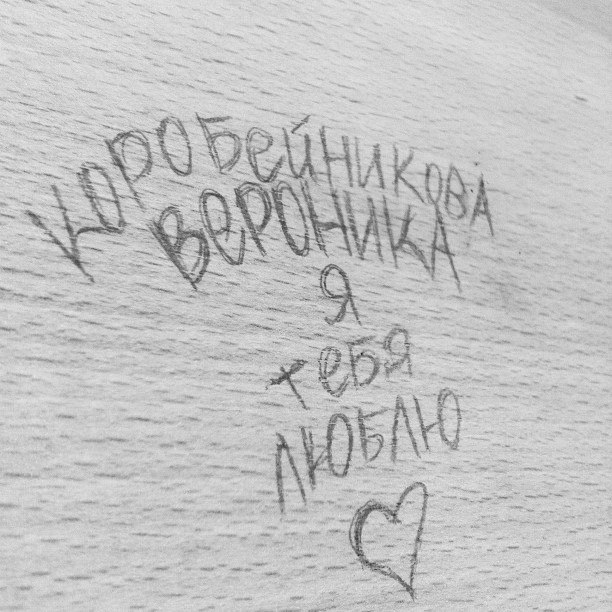 Коробейникова
Вероника
Я
тебя
люблю